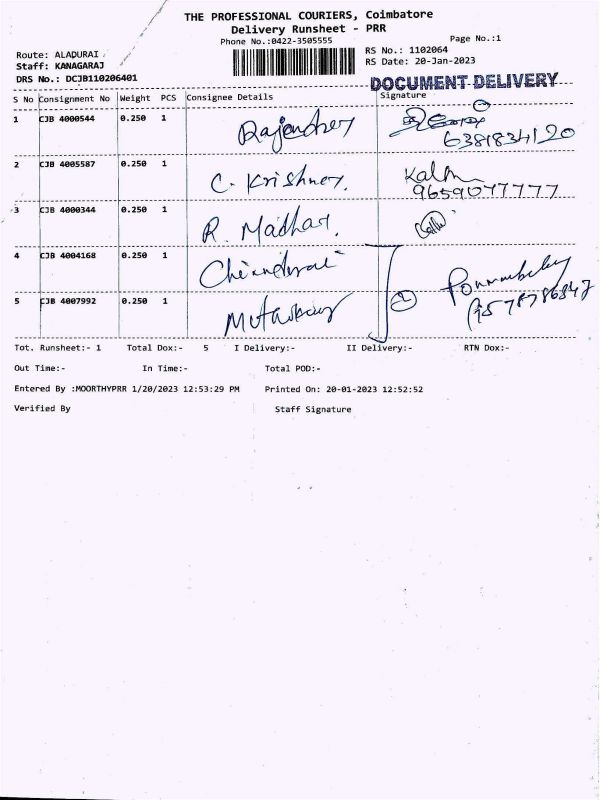 THE PROFESSIONAL COURIERS, Coimbatore
Delivery Runsheet - PRR
Phone No.:0422-3505555
Page No.:1
Route: ALADURAI
Staff: KANAGARAJ
DRS No.: DCJB110206401
RS No.: 1102064
RS Date: 20-Jan-2023
DOCUMENT DELIVERY
S No Consignment No Weight PCS Consignee Details Signature
1 CJB 4000544 0.250 1 Rajendrer
6381834120
2 CJB 4005587 0.250 1 C. Krishner. Kalm
9659077777
3 CJB 4000344 0.250 1 R. Madhar.
4 CJB 4004168 0.250 1
5 CJB 4007992 0.250 1 2
Tot. Runsheet:- 1 Total Dox:- 5 I Delivery:- II Delivery:- RTN Dox:-
Out Time:- In Time:- Total POD:-
Entered By :MOORTHYPRR 1/20/2023 12:53:29 PM Printed On: 20-01-2023 12:52:52
Verified By Staff Signature